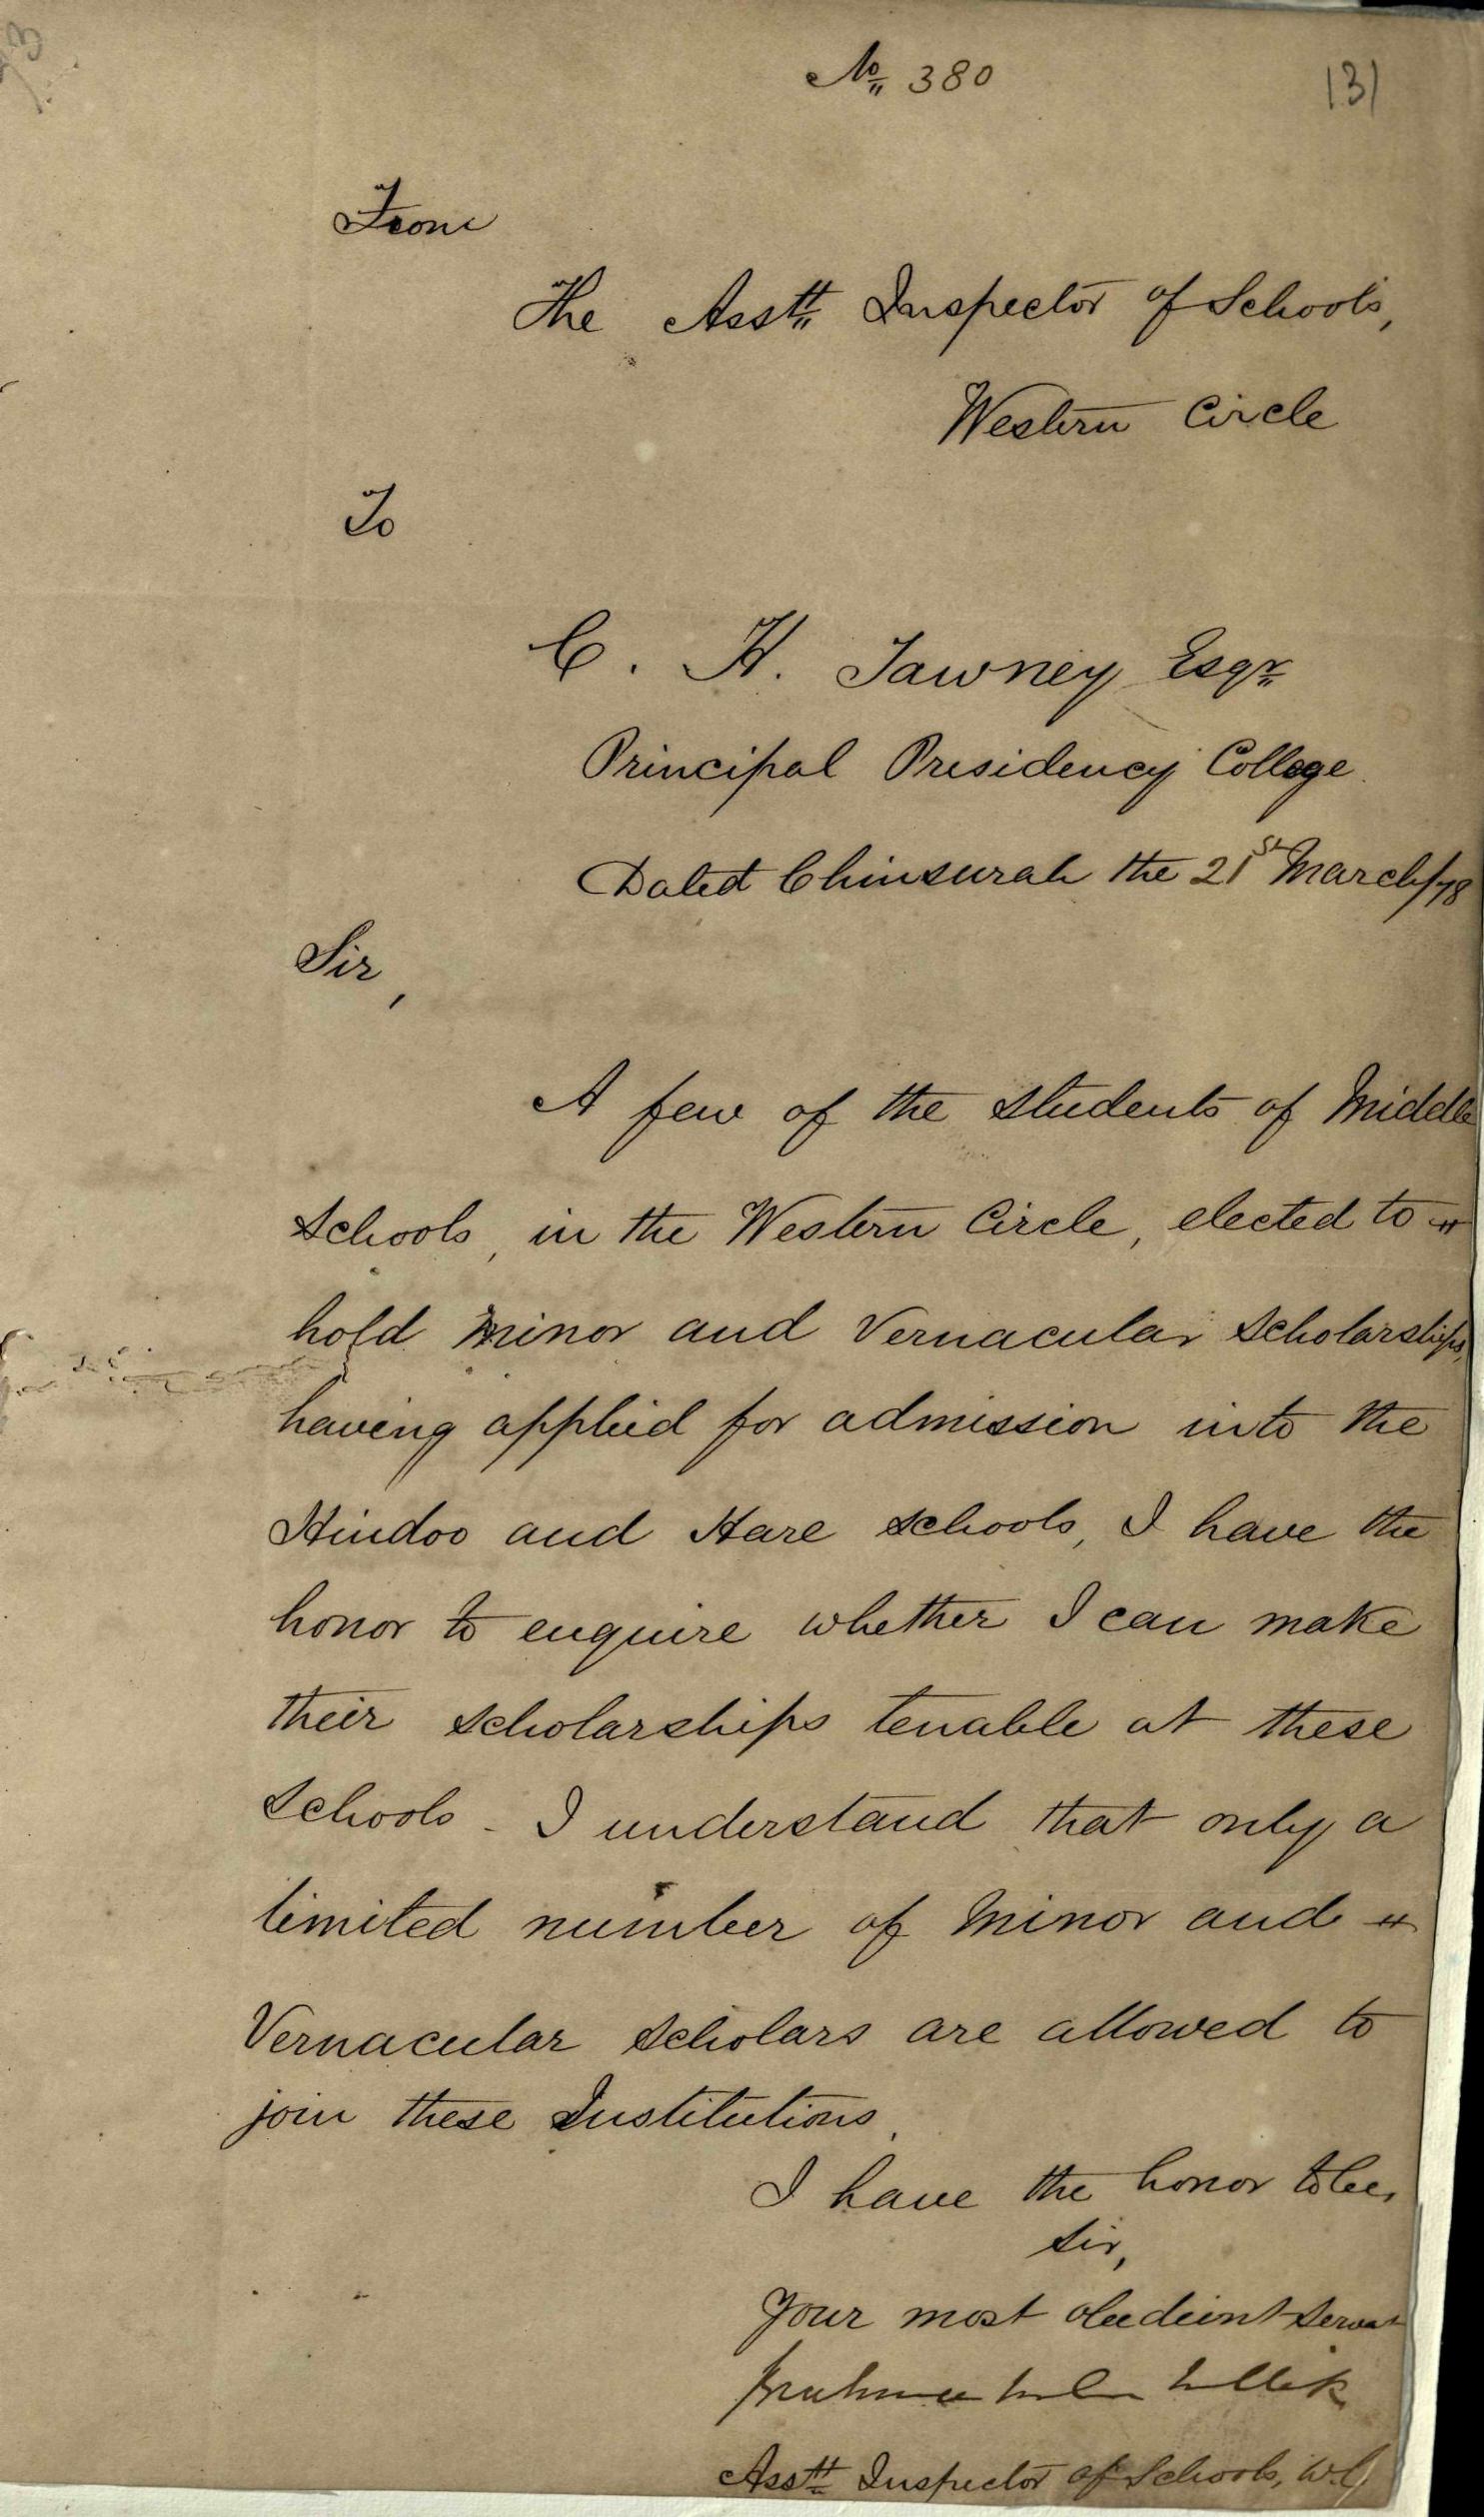 No 380
131
From
The Asstt Inspector of Schools,
Western Circle
To
C. H. Tawney Esqr
Principal Presidency College
Dated Chinsurah the 21st March/78
Sir,
A few of the students of Middle
Schools, in the Western Circle, elected to
hold minor and Vernacular Scholarships,
having applied for admission into the
Hindoo and Hare schools, I have the
honor to enquire whether I can make
their scholarships tenable at these
Schools - I understand that only a
limited number of Minor and
Vernacular scholars are allowed to
join these Institutions.
I have the honor to be,
Sir,
Your most obedient servant
Mullik
Asstt Inspector of Schools, W.C.